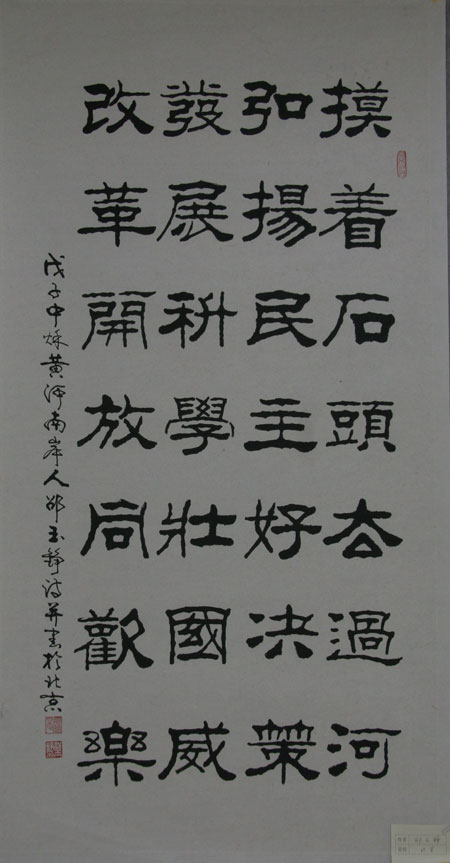 摸着石頭去過河
弘揚民主好決策
發展科學壯國威
改革開放同歡樂
戊子中秋黄河南岸人邵玉錚詩并書於北京